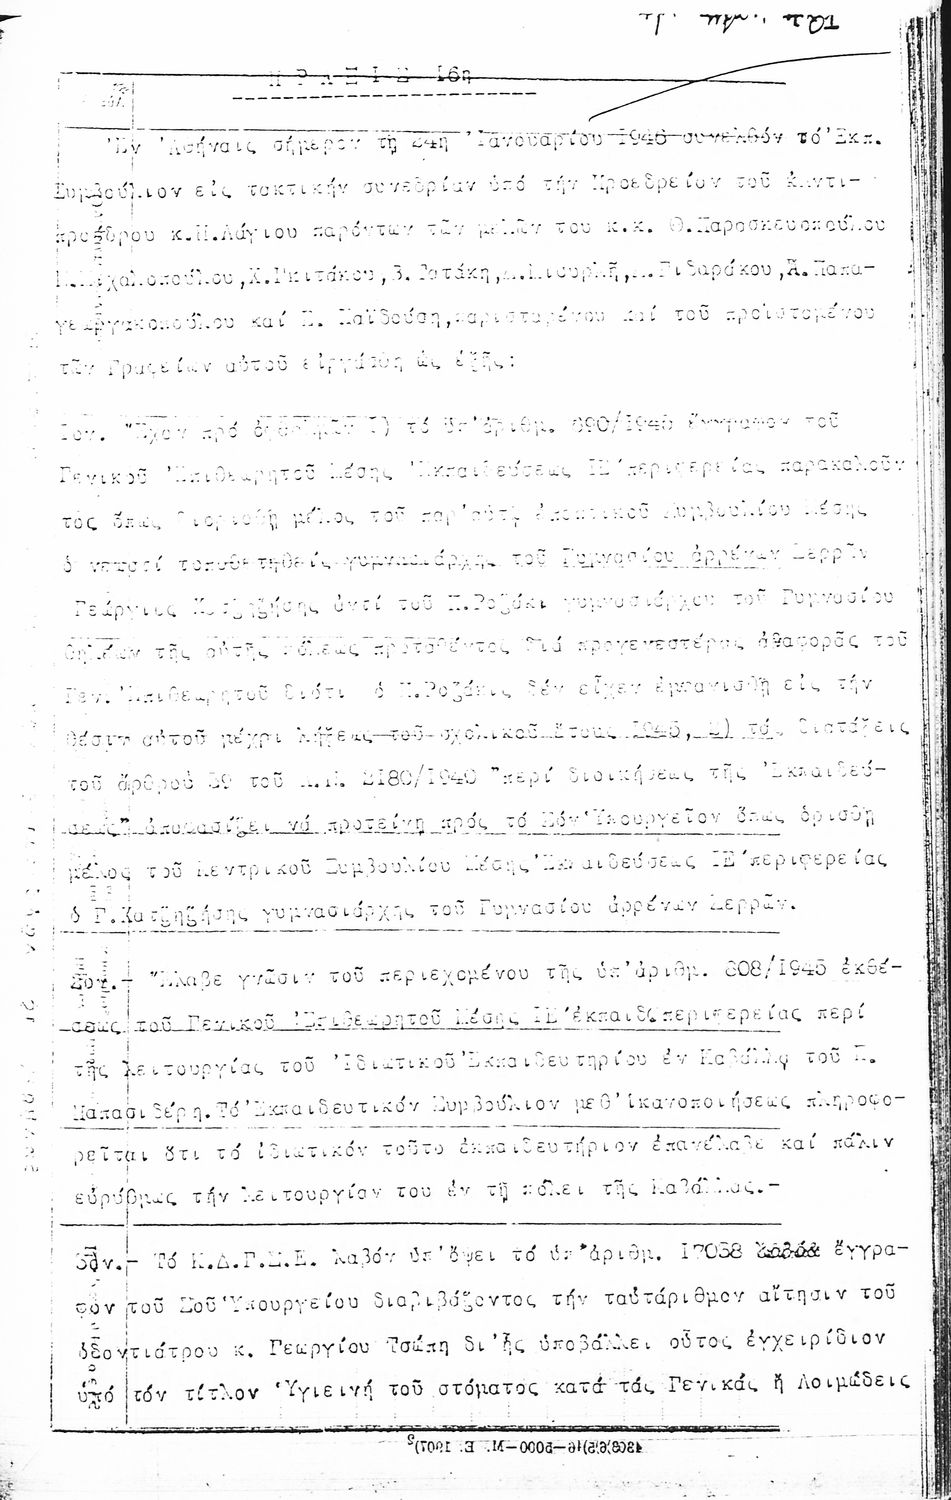 Π Ρ Α Ξ Ι Σ 16η
Ἐν Ἀθήναις σήμερον τῇ 24η Ἰανουαρίου 1946 συνελθόν τό Ἐκπ.
Συμβούλιον εἰς τακτικήν συνεδρίαν ὑπό τήν Προεδρείαν τοῦ Ἀντι-
προέδρου κ.Π.Λάγιου παρόντων τῶν μελῶν του κ.κ. Θ.Παρασκευοπούλου
Μιχαλοπούλου, Χ. Β. Ἀ. Παπα-
γεωργακοπούλου καί Π. Παϊδούση, παρισταμένου καί τοῦ προϊσταμένου
τῶν Γραφείων αὐτοῦ εἰργάσθη ὡς ἑξῆς:
Ιον. Ἔχον πρό ὀφθαλμῶν Ι) τό ὑπ' ἀριθμ. 690/1945 ἔγγραφον τοῦ
Γενικοῦ Ἐπιθεωρητοῦ Μέσης Ἐκπαιδεύσεως ΙΕ΄περιφερείας παρακαλοῦν
τος ὅπως διορισθῇ μέλος τοῦ παρ' αὐτῷ ἐποπτικοῦ Συμβουλίου Μέσης
ὁ νεωστί τοποθετηθείς γυμνασιάρχης τοῦ Γυμνασίου ἀρρένων Σερρῶν
Γεώργιος Χατζηζήσης ἀντί τοῦ Π.Ροζάκι γυμνασιάρχου τοῦ Γυμνασίου
θηλέων τῆς αὐτῆς πόλεως προταθέντος διά προγενεστέρας ἀναφορᾶς τοῦ
Γεν. Ἐπιθεωρητοῦ διότι ὁ Π.Ροζάκις δέν εἶχεν ἐμφανισθῇ εἰς τήν
θέσιν αὐτοῦ μέχρι λήξεως τοῦ σχολικοῦ ἔτους 1945, 2) τάς διατάξεις
τοῦ ἄρθρου 39 τοῦ Α.Ν. 2180/1940 "περί διοικήσεως τῆς Ἐκπαιδεύ-
σεως" ἀποφασίζει νά προτείνῃ πρός τό Σόν Ὑπουργεῖον ὅπως ὁρισθῇ
μέλος τοῦ Κεντρικοῦ Συμβουλίου Μέσης Ἐκπαιδεύσεως ΙΕ΄περιφερείας
ὁ Γ.Χατζηζήσης γυμνασιάρχης τοῦ Γυμνασίου ἀρρένων Σερρῶν.
2ον.- Ἔλαβε γνῶσιν τοῦ περιεχομένου τῆς ὑπ' ἀριθμ. 808/1945 ἐκθέ-
σεως τοῦ Γενικοῦ Ἐπιθεωρητοῦ Μέσης ΙΕ΄ἐκπαιδ.περιφερείας περί
τῆς λειτουργίας τοῦ Ἰδιωτικοῦ Ἐκπαιδευτηρίου ἐν Καβάλλᾳ τοῦ Π.
Παπασιδέρη. Τό Ἐκπαιδευτικόν Συμβούλιον μεθ' ἱκανοποιήσεως πληροφο-
ρεῖται ὅτι τό ἰδιωτικόν τοῦτο ἐκπαιδευτήριον ἐπανέλαβε καί πάλιν
εὐρύθμως τήν λειτουργίαν του ἐν τῇ πόλει τῆς Καβάλλας.-
3ον.- Τό Κ.Δ.Γ.Σ.Ε. λαβόν ὑπ' ὄψει τό ὑπ' ἀριθμ. 17058 ἔγγρα-
φον τοῦ Σοῦ Ὑπουργείου διαβιβάζοντος τήν ταὐτάριθμον αἴτησιν τοῦ
ὀδοντιάτρου κ. Γεωργίου Τσώπη δι' ἧς ὑποβάλλει οὗτος ἐγχειρίδιον
ὑπό τόν τίτλον Ὑγιεινή τοῦ στόματος κατά τάς Γενικάς ἤ Λοιμώδεις